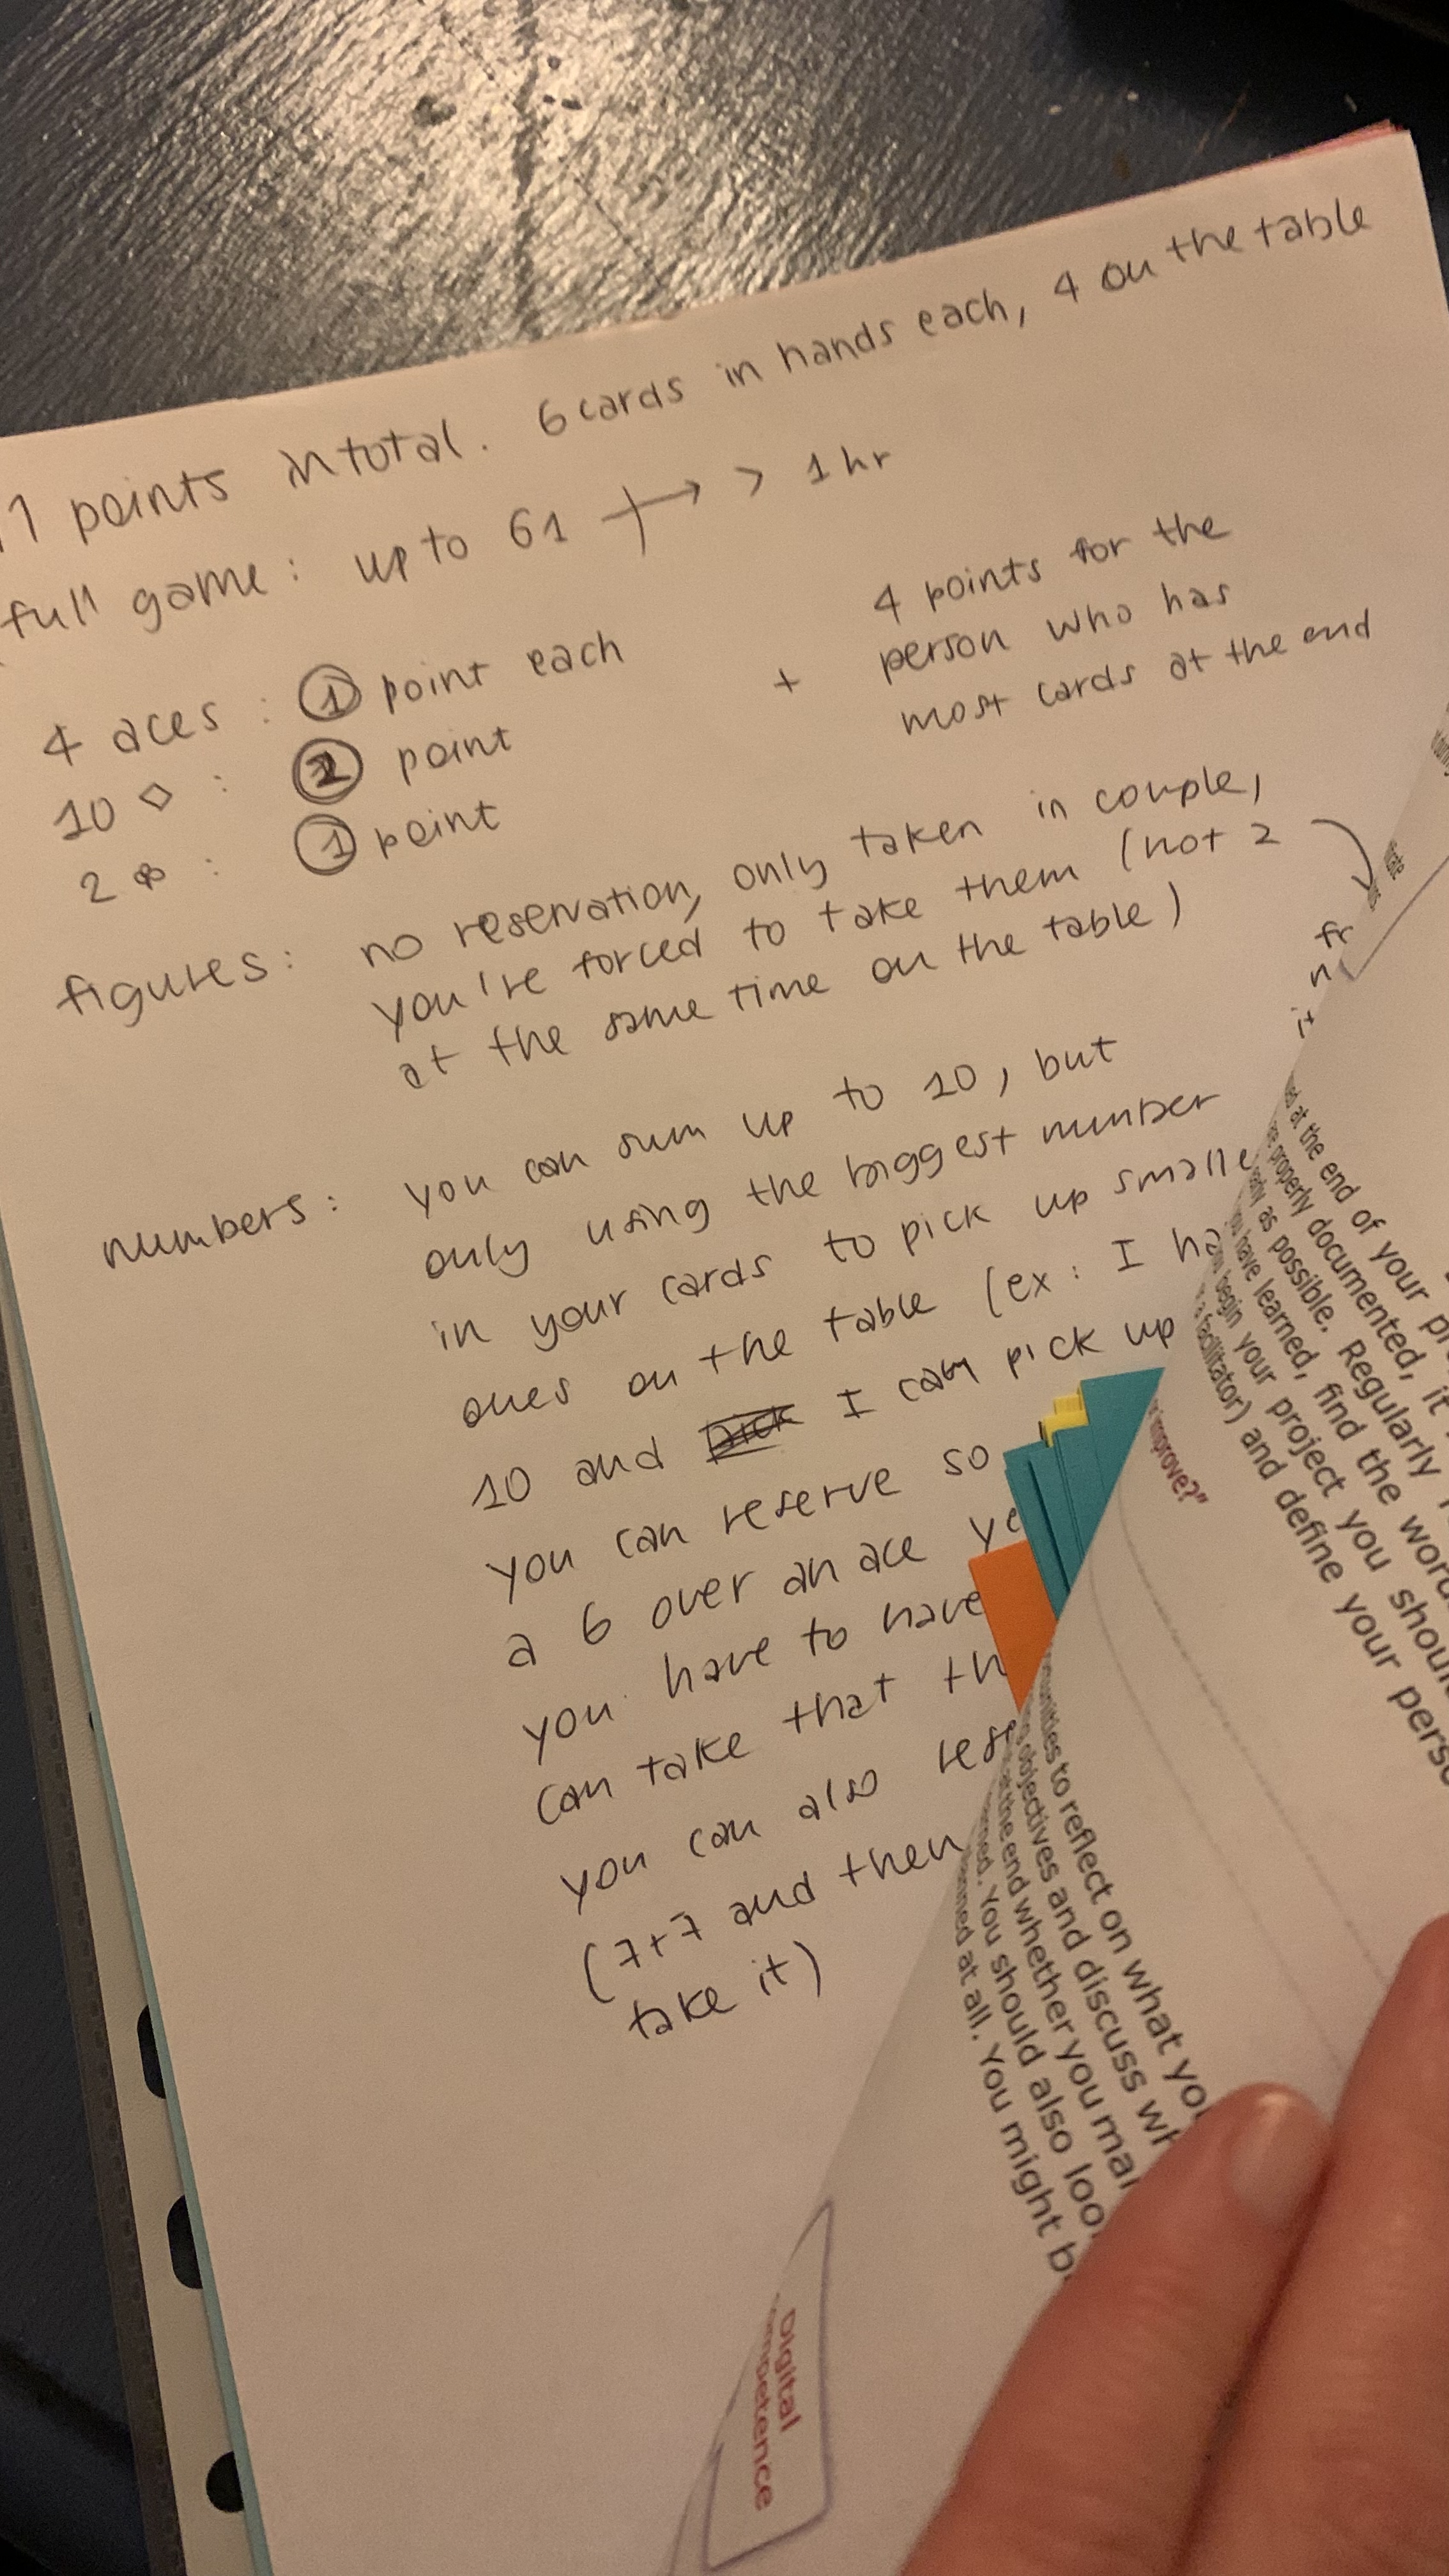 1 points in total. 6 cards in hands each, 4 on the table
full game: up to 61 → > 1 hr
4 aces: 1 point each
10 ◇: 2 point
2 : 1 point
+ 4 points for the
person who has
most cards at the end
figures: no reservation, only taken in couple,
you're forced to take them (not 2
at the same time on the table)
fr
n
it
numbers: you can sum up to 10, but
only using the biggest number
in your cards to pick up smalle
ones on the table (ex: I ha
10 and I can pick up
you can reserve so
a 6 over an ace ye
you have to have
can take that th
you can also rese
(7+7 and then
take it)
at the end of your pr
properly documented, it
as possible. Regularly
have learned, find the word
begin your project you shoul
facilitator) and define your perso
improve?"
unities to reflect on what you
objectives and discuss wh
at the end whether you ma
. You should also loo
at all. You might b
Digital
ompetence